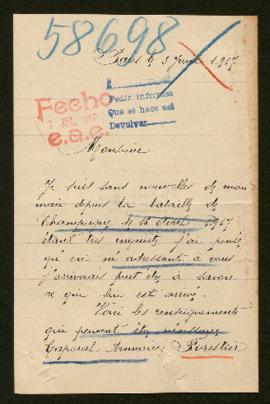 58698
Paris le 3 Juin 1917
Fecho
7 JUL. 1917
e.a.e.
Pedir informes
Que se hace así
Devolver
Monsieur
Je suis sans nouvelles de mon
mari depuis la bataille de
le 16 Avril 1917
étant très inquiète j'ai pensé
qu'en m'adressant à vous
j'arriverais peut être à savoir
ce que lui est arrivé.
Voici les renseignements
qui peuvent être nécessaires
Caporal Armurier Forestier